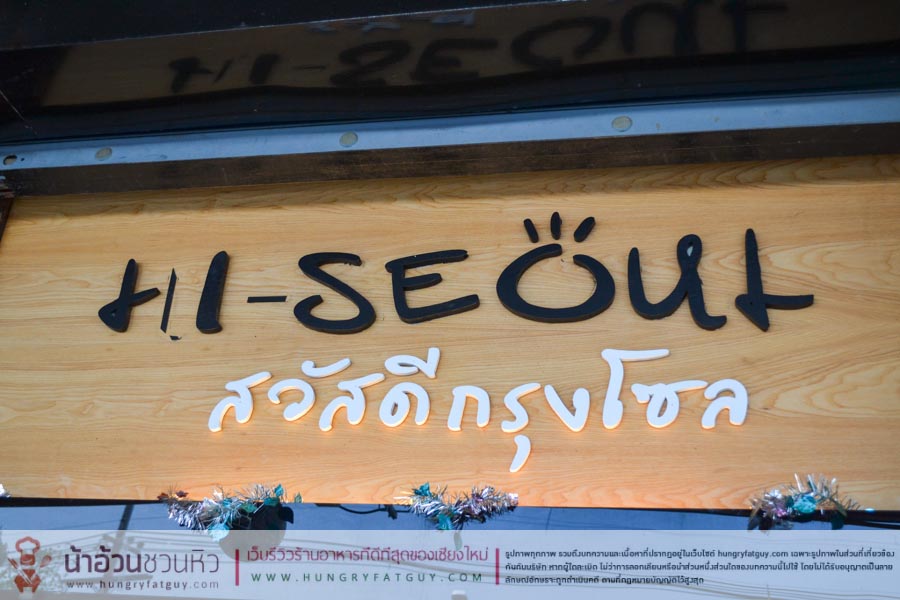 HI-SEOUL
สวัสดีกรุงโซล
น้าอ้วนชวนหิว
www.hungryfatguy.com
เว็บรีวิวร้านอาหารที่ดีที่สุดของเชียงใหม่
WWW.HUNGRYFATGUY.COM
รูปภาพทุกภาพ รวมถึงบทความและเนื้อหาที่ปรากฏอยู่ในเว็บไซต์ hungryfatguy.com เฉพาะรูปภาพในส่วนที่เกี่ยวข้อง
กันกับบริษัท หากผู้ใดละเมิด ไม่ว่าการลอกเลียนหรือนำส่วนหนึ่งส่วนใดของบทความนี้ไปใช้ โดยไม่ได้รับอนุญาตเป็นลาย
ลักษณ์อักษรจะถูกดำเนินคดี ตามที่กฏหมายบัญญัติไว้สูงสุด